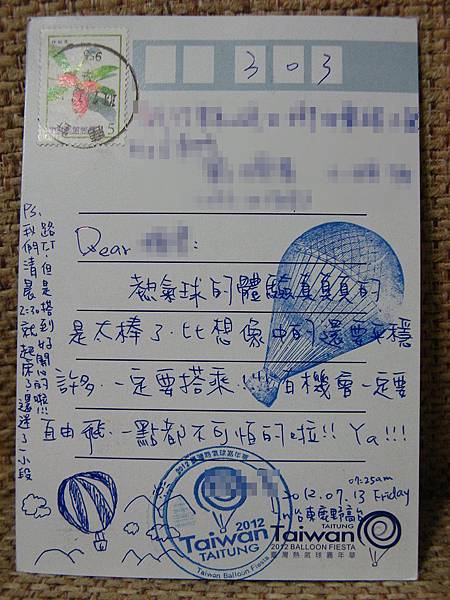 303
Dear :
熱氣球的體驗真真真的
是太棒了．比想像中的還要平穩
許多．一定要搭乘!!! 有機會一定要
自由飛．一點都不可怕的啦!! Ya!!!
07:25am
2012.07.13 Friday
in 台東鹿野高台
PS:
我們清晨2:30就起床了還迷了一小段
路T.T.但是搭到好開心的啦!!!
2012臺灣熱氣球嘉年華
2012
Taiwan
TAITUNG
Taiwan Balloon Fiesta
TAITUNG
Taiwan
2012 BALLOON FIESTA
臺灣熱氣球嘉年華